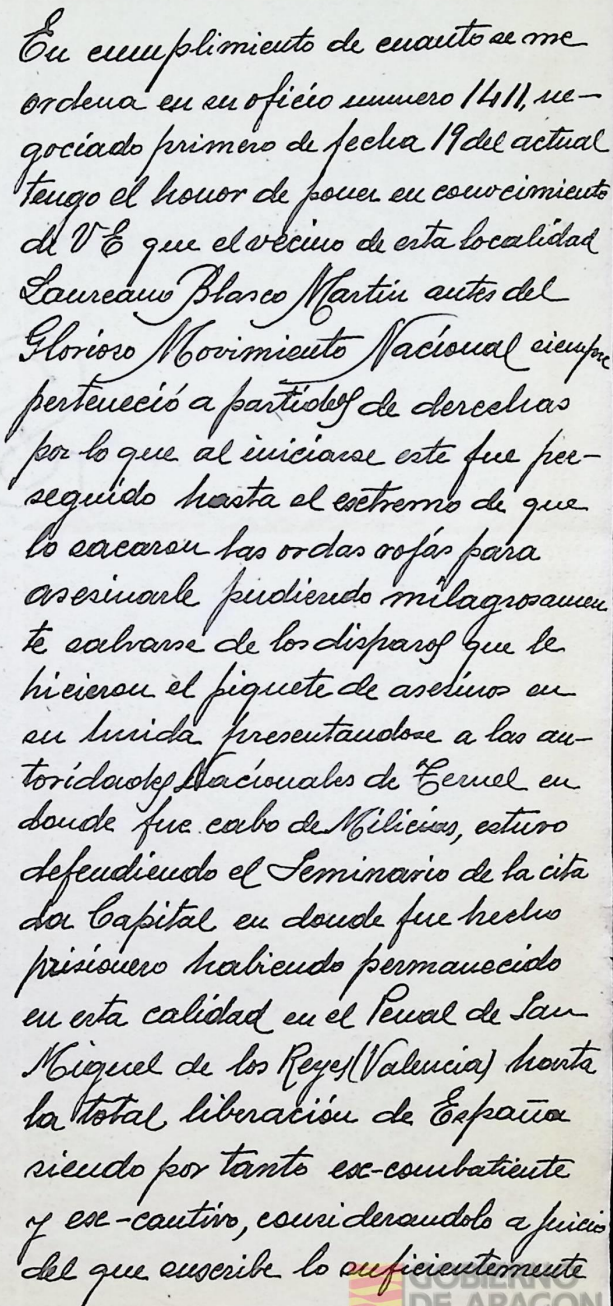 En cumplimiento de cuanto se me
ordena en su oficio numero 1411, ne-
gociado primero de fecha 19 del actual
tengo el honor de poner en conocimiento
de V E que el vecino de esta localidad
Laureano Blasco Martin antes del
Glorioso Movimiento Nacional siempre
perteneció a partidos de derechas
por lo que al iniciarse este fue per-
seguido hasta el esxtremo de que
lo sacaron las ordas rojas para
asesinarle pudiendo milagrosamen
te salvarse de los disparos que le
hicieron el piquete de asesinos en
su huida presentandose a las au-
toridades Nacionales de Teruel en
donde fue cabo de Milicias, estuvo
defendiendo el Seminario de la cita
da Capital en donde fue hecho
prisionero habiendo permanecido
en esta calidad en el Penal de San
Miguel de los Reyes (Valencia) hasta
la total liberación de España
siendo por tanto ex-combatiente
y ex-cautivo, considerandolo a juicio
del que suscribe lo suficientemente
GOBIERNO
DE ARAGON